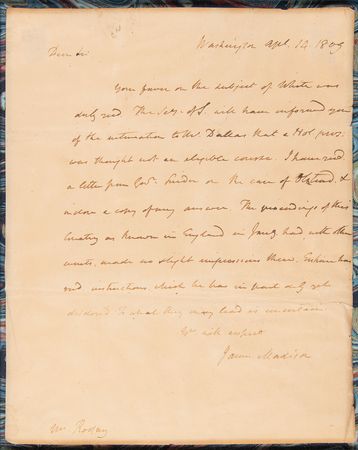 Washington Apl. 14 1809
Dear Sir
Your favor on the subject of White was
duly recd. The Secy. of S. will have informed you
of the intimation to Mr. Dallas that a Nol. pros.
was thought not an eligible course. I have recd
a letter from Govr. Snider on the case of Olmstead &
inclose a copy of my answer. The proceedings of this
Country as known in England in Jany. had with other
events, made no slight impressions there. Erskine has
recd instructions, which he has in part only yet
disclosed. To what they may lead is uncertain.
Yrs. with respect
James Madison
Mr. Rodney